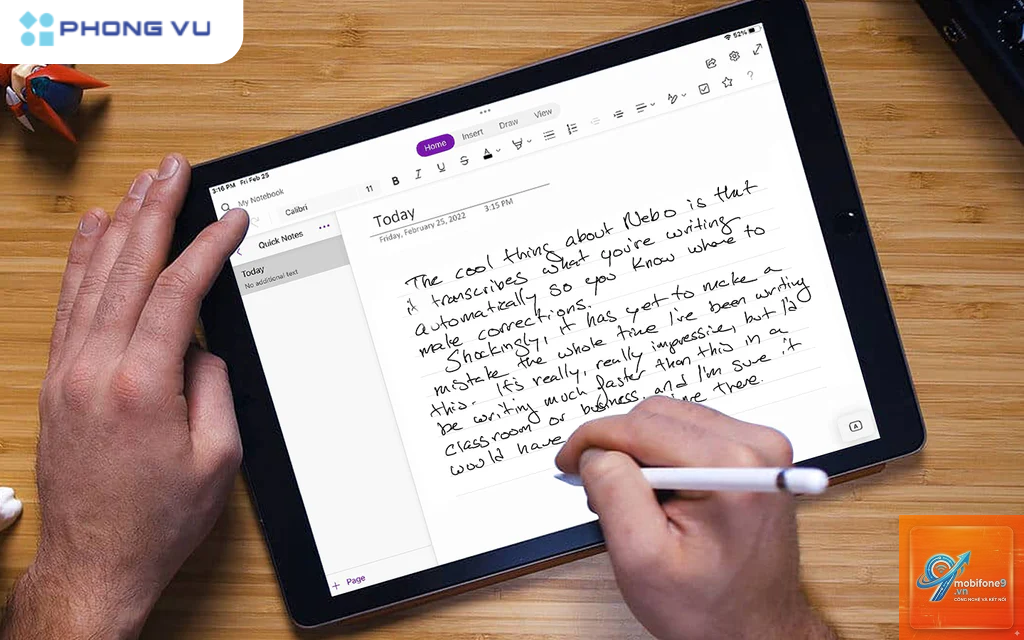 PHONG VU
3:16 PM Fri Feb 25
52%
My Notebook
Home
Insert
Draw
View
Calibri
11
B
I
U
S
A
?
Quick Notes
Today
No additional text
Today
Friday, February 25, 2022
3:15 PM
The cool thing about Nebo is that
it transcribes what you're writing
automatically so you know where to
make corrections.
Shockingly, it has yet to make a
mistake the whole time I've been writing
this. It's really, really impressive, but I'd
be writing much faster than this in a
classroom or business, and I'm sure it
would have there.
+ Page
A
mobifone9
.vn
CÔNG NGHỆ VÀ KẾT NỐI